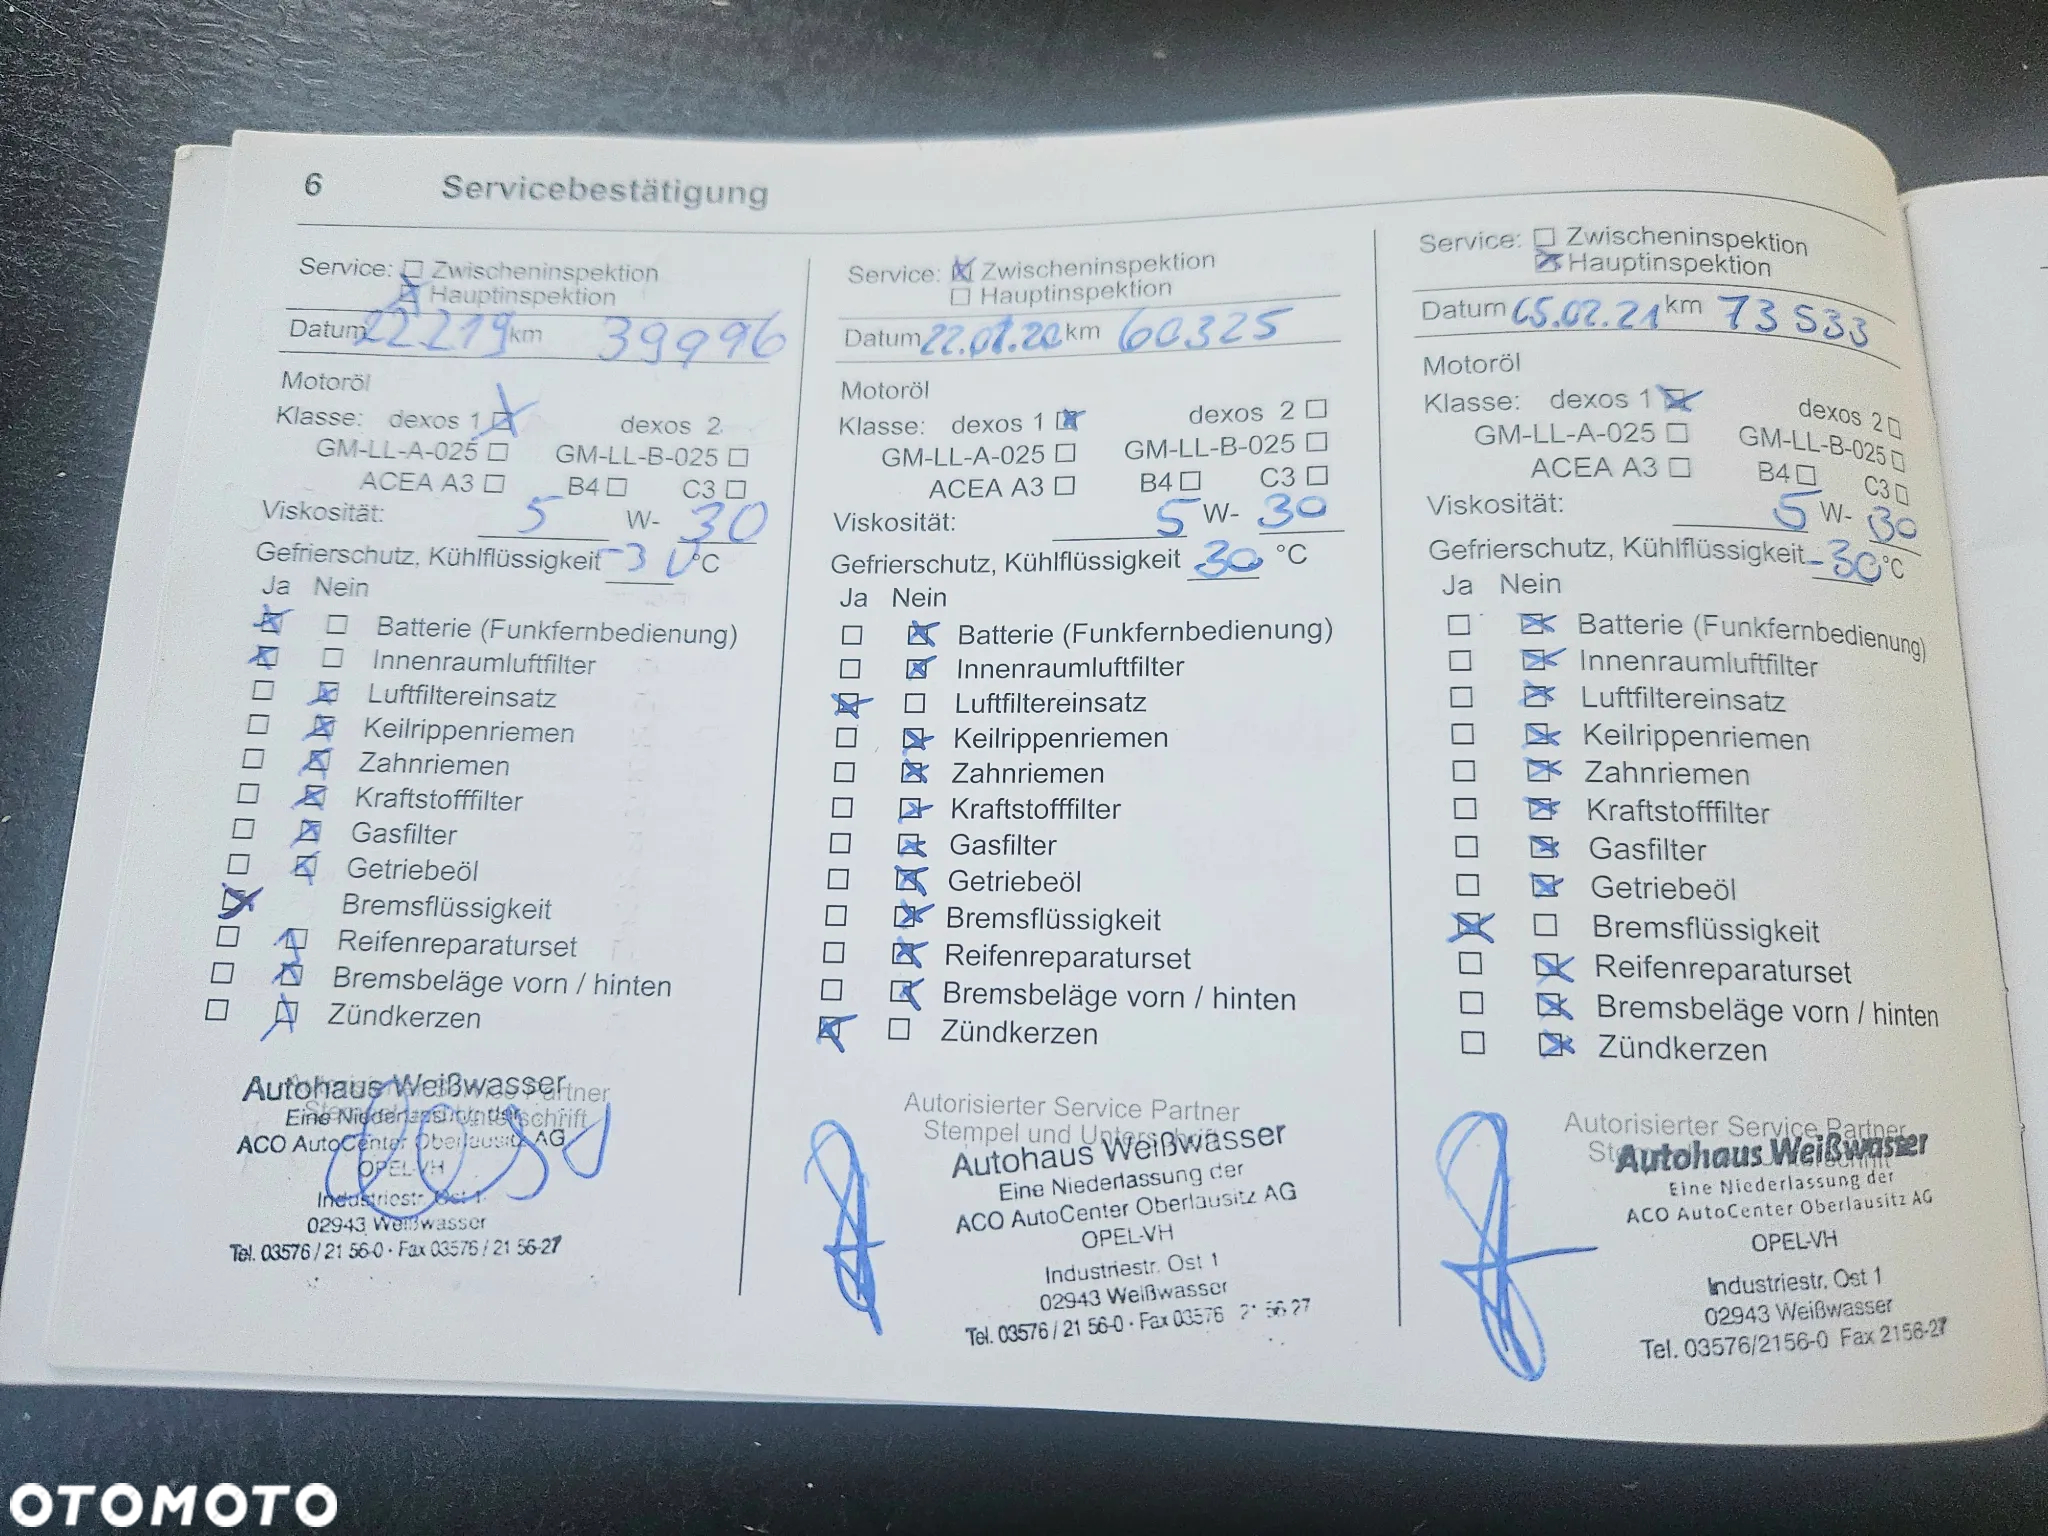 6 Servicebestätigung
Service: Zwischeninspektion
Hauptinspektion
Datum 22.2.19 km 39996
Motoröl
Klasse: dexos 1 dexos 2
GM-LL-A-025 GM-LL-B-025
ACEA A3 B4 C3
Viskosität: 5 W- 30
Gefrierschutz, Kühlflüssigkeit -30 °C
Ja Nein
Batterie (Funkfernbedienung)
Innenraumluftfilter
Luftfiltereinsatz
Keilrippenriemen
Zahnriemen
Kraftstofffilter
Gasfilter
Getriebeöl
Bremsflüssigkeit
Reifenreparaturset
Bremsbeläge vorn / hinten
Zündkerzen
Autohaus Weißwasser
Eine Niederlassung der
ACO AutoCenter Oberlausitz AG
OPEL-VH
Industriestr. Ost 1
02943 Weißwasser
Tel. 03576 / 21 56-0 · Fax 03576 / 21 56-27
Service: Zwischeninspektion
Hauptinspektion
Datum 22.01.20 km 60325
Motoröl
Klasse: dexos 1 dexos 2
GM-LL-A-025 GM-LL-B-025
ACEA A3 B4 C3
Viskosität: 5 W- 30
Gefrierschutz, Kühlflüssigkeit -30 °C
Ja Nein
Batterie (Funkfernbedienung)
Innenraumluftfilter
Luftfiltereinsatz
Keilrippenriemen
Zahnriemen
Kraftstofffilter
Gasfilter
Getriebeöl
Bremsflüssigkeit
Reifenreparaturset
Bremsbeläge vorn / hinten
Zündkerzen
Autorisierter Service Partner
Stempel und Unterschrift
Autohaus Weißwasser
Eine Niederlassung der
ACO AutoCenter Oberlausitz AG
OPEL-VH
Industriestr. Ost 1
02943 Weißwasser
Tel. 03576 / 21 56-0 · Fax 03576 21 56-27
Service: Zwischeninspektion
Hauptinspektion
Datum 05.02.21 km 73533
Motoröl
Klasse: dexos 1 dexos 2
GM-LL-A-025 GM-LL-B-025
ACEA A3 B4 C3
Viskosität: 5 W- 30
Gefrierschutz, Kühlflüssigkeit -30 °C
Ja Nein
Batterie (Funkfernbedienung)
Innenraumluftfilter
Luftfiltereinsatz
Keilrippenriemen
Zahnriemen
Kraftstofffilter
Gasfilter
Getriebeöl
Bremsflüssigkeit
Reifenreparaturset
Bremsbeläge vorn / hinten
Zündkerzen
Autorisierter Service Partner
Autohaus Weißwasser
Eine Niederlassung der
ACO AutoCenter Oberlausitz AG
OPEL-VH
Industriestr. Ost 1
02943 Weißwasser
Tel. 03576/2156-0 Fax 2156-27
OTOMOTO